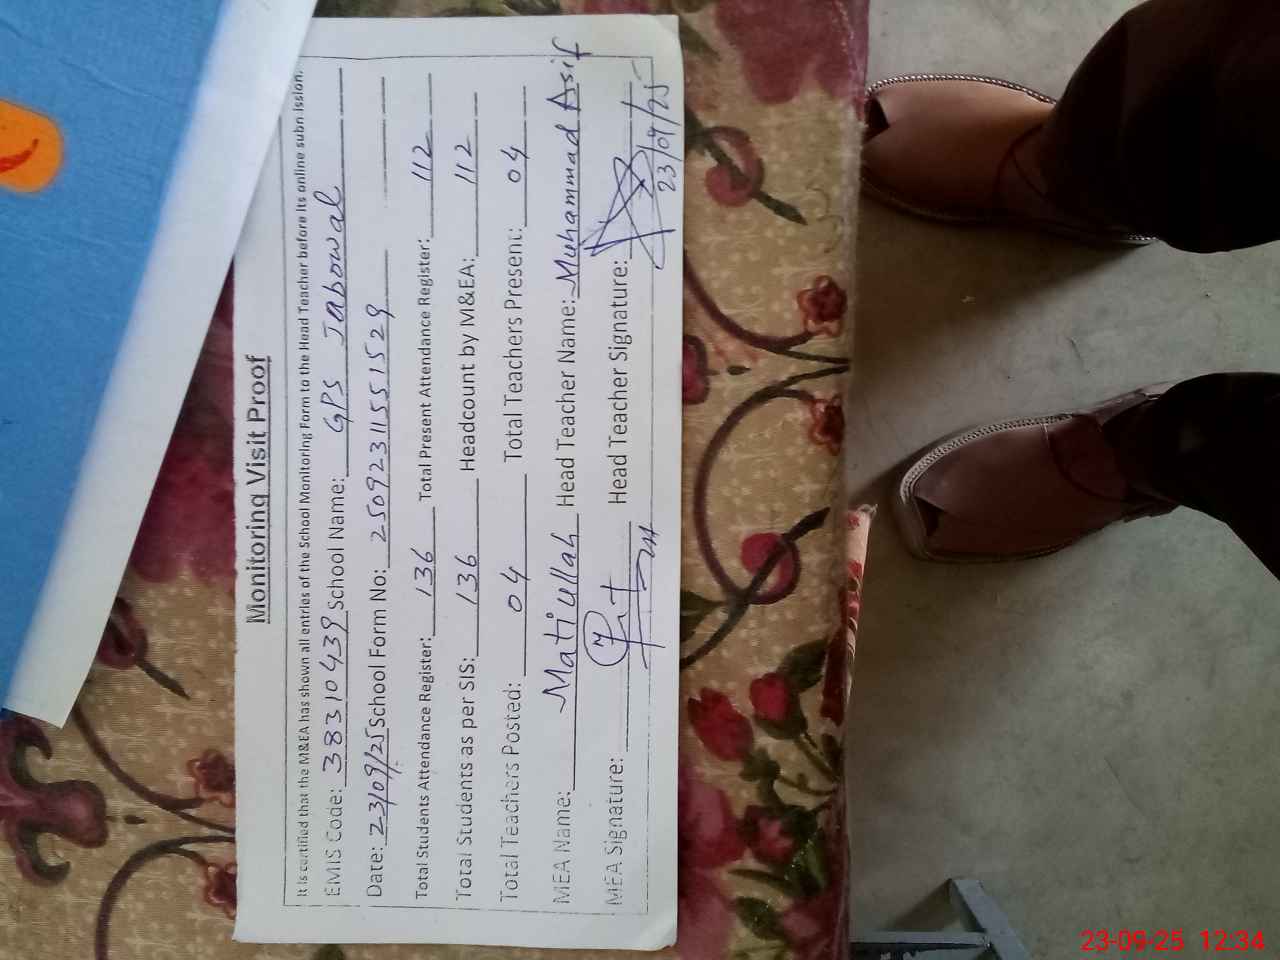 Monitoring Visit Proof
It is certified that the M&EA has shown all entries of the School Monitoring Form to the Head Teacher before its online submission.
EMIS Code: 38310439 School Name: GPS Jabowal
Date: 23/09/25 School Form No: 25092311551529
Total Students Attendance Register: 136 Total Present Attendance Register: 112
Total Students as per SIS: 136 Headcount by M&EA: 112
Total Teachers Posted: 04 Total Teachers Present: 04
MEA Name: Matiullah Head Teacher Name: Muhammad Asif
MEA Signature: Head Teacher Signature:
23/09/25
23-09-25 12:34